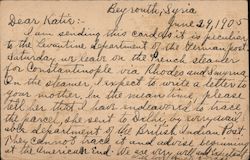 Beyrouth, Syria
June 29, 1903
Dear Katie:-
I am sending this card as it is peculiar
to the Levantine department of the German post.
Saturday we leave on the French steamer
for Constantinople via Rhodes and Smyrna
On the steamer I expect to write a letter to
your mother, in the meantime please
tell her that I have endeavored to trace
the parcel, she sent to Delhi, by every
department of the British Indian Post.
They cannot trace it and advise
at the American End. We are very well